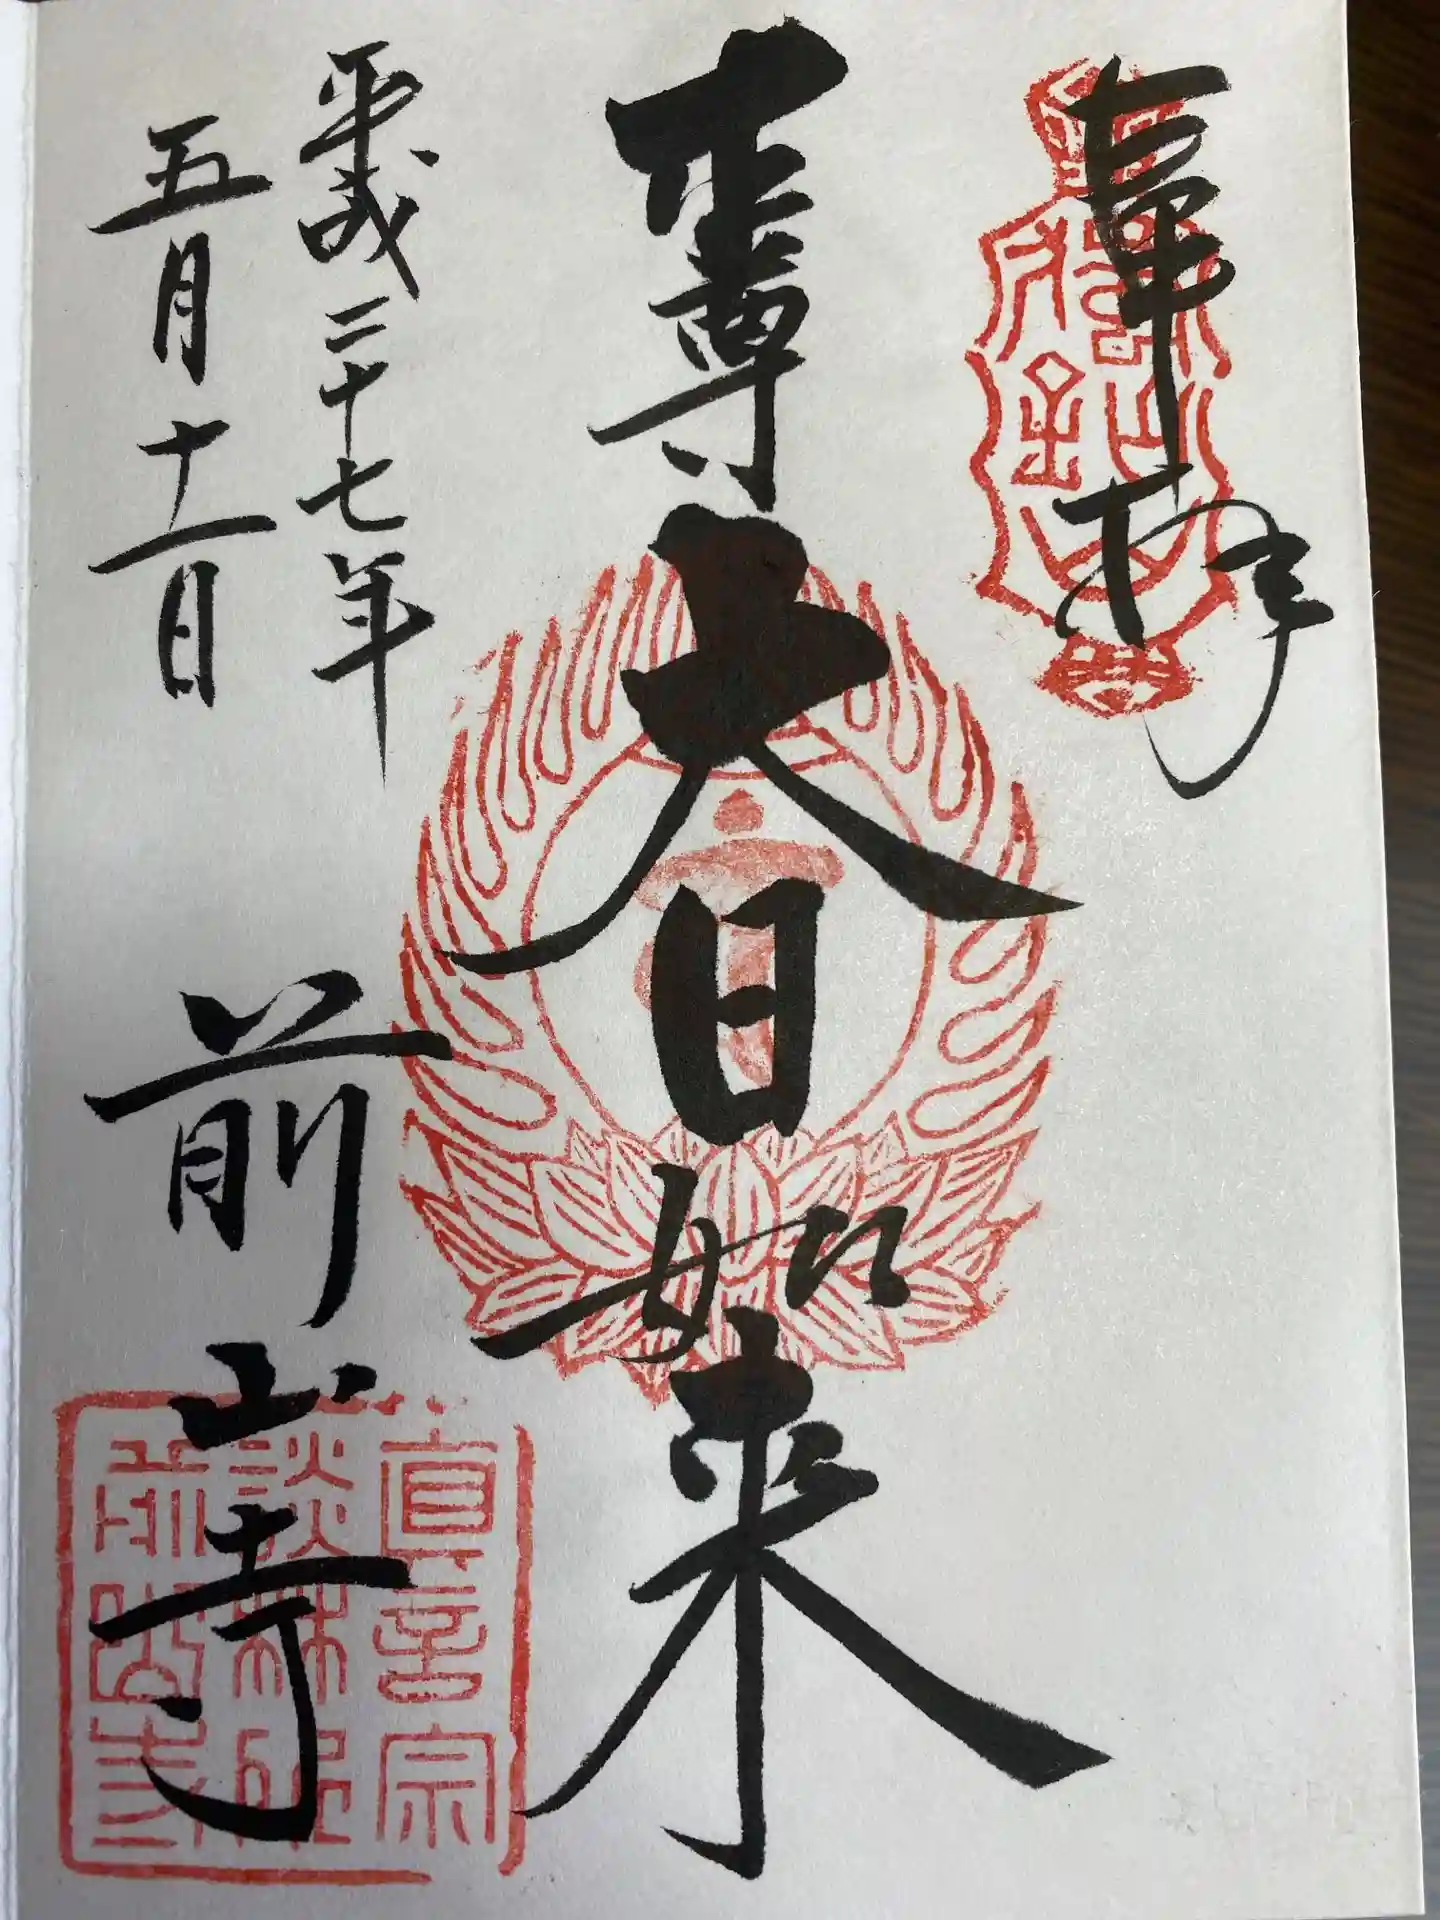 奉拝
本尊大日如来
平成二十七年
五月十一日
前山寺
真言宗
談林所
前山寺